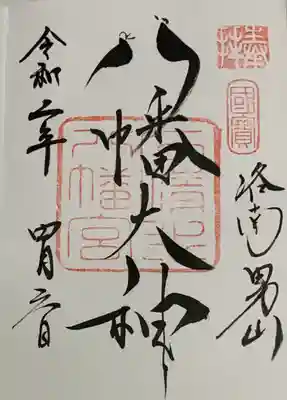 國寶
洛南男山
八幡大神
石清水
八幡宮
令和二年四月六日